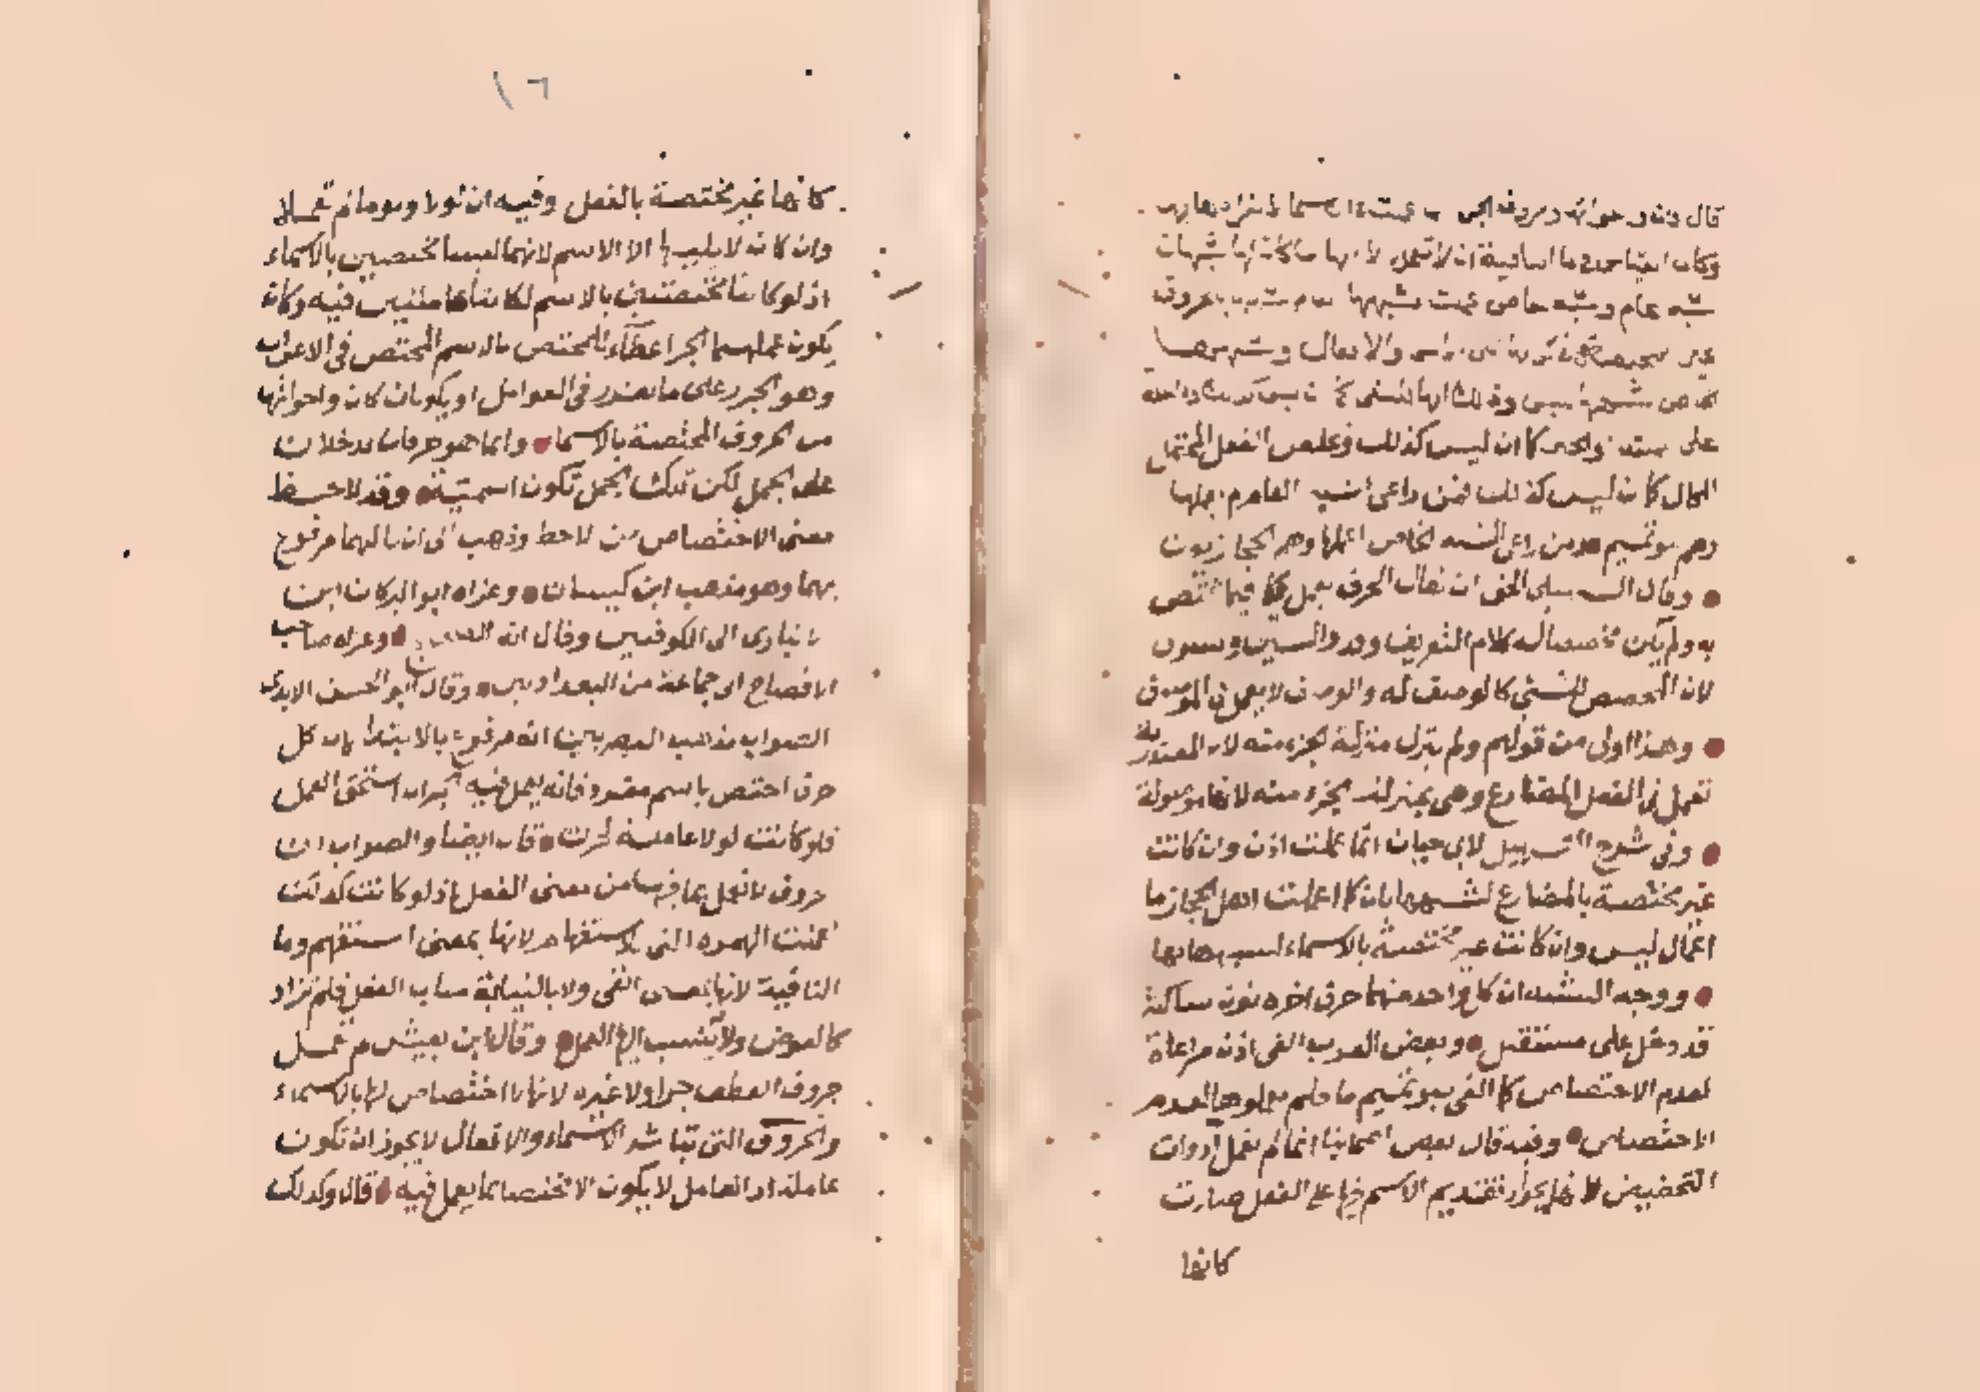 قال
وكان القياس في ما النافية ان لا تعمل لانها
شبه عام وشبه خاص
غير والافعال
على كما ان ليس كذلك
الحال كما ان ليس كذلك فمن راعى
وهم بنو تميم ومن راعى الشبه الخاص اعملها وهم الحجازيون
وقال السهيلي الحق ان يقال الحرف يعمل فيما اختص
به ولم يكن مخصصا له كلام التعريف وقد والسين وسوف
لان المخصص للشيء كالوصف له والوصف لا يعمل في الموصوف
وهذا اولى من قولهم ولم يتنزل منزلة الجزء منه لان المصدرية
تعمل في الفعل المضارع وهي بمنزلة الجزء منه لانها موصولة
وفي شرح التسهيل لابي حيان انما عملت اذن وان كانت
غير مختصة بالمضارع لشبهها بان كما اعملت اهل الحجاز ما
اعمال ليس وان كانت غير مختصة بالاسماء لشبهها بها
ووجه الشبه ان كل واحد منهما حرف اخره نون ساكنة
قد دخل على مستقبل وبعض العرب الغى اذن مراعاة
لعدم الاختصاص كما الغى بنو تميم ما فلم يعملوها لعدم
الاختصاص وفيه قال بعض اصحابنا انما لم تعمل ادوات
التحضيض لانها يجوز تقديم الاسم فيها على الفعل صارت
كانها
١٦
كانها غير مختصة بالفعل وفيه ان لولا ولوما لم تعملا
وان كانا لا يليهما الا الاسم لانهما ليسا مختصين بالاسماء
اذ لو كانتا مختصتين بالاسم لكانتا عاملتين فيه وكان
يكون عملهما الجر اعطاء للمختص بالاسم المختص في الاعراب
وهو الجر على ما تقرر في العوامل او يكونان كان واخواتها
من الحروف المختصة بالاسماء وانما هو حرفان يدخلان
على الجمل لكن تلك الجمل تكون اسمية وقد لاحظ
معنى الاختصاص من لاحظ وذهب الى ان تاليهما مرفوع
بهما وهو مذهب ابن كيسان وعزاه ابو البركات ابن
الانباري الى الكوفيين وقال انه الصحيح وعزاه صاحب
الافصاح الى جماعة من البغداديين وقال ابو الحسن الابدي
الصواب مذهب البصريين انه مرفوع بالابتداء لان كل
حرف اختص باسم مفرد فانه يعمل فيه الجر ان استحق العمل
فلو كانت لولا عاملة لجرت قال ايضا والصواب ان
الحروف لا تعمل بما فيها من معنى الفعل اذ لو كانت كذلك
لعملت الهمزة التي للاستفهام لانها بمعنى استفهم وما
النافية لانها بمعنى انفي ولا بالنيابة مناب الفعل فلم تزاد
كالعوض ولا ينسب اليها العمل وقال ابن يعيش لم تعمل
حروف العطف جرا ولا غيره لانها لا اختصاص لها بالاسماء
والحروف التي تباشر الاسماء والافعال لا يجوز ان تكون
عاملة اذ العامل لا يكون الا مختصا بما يعمل فيه قال وكذلك